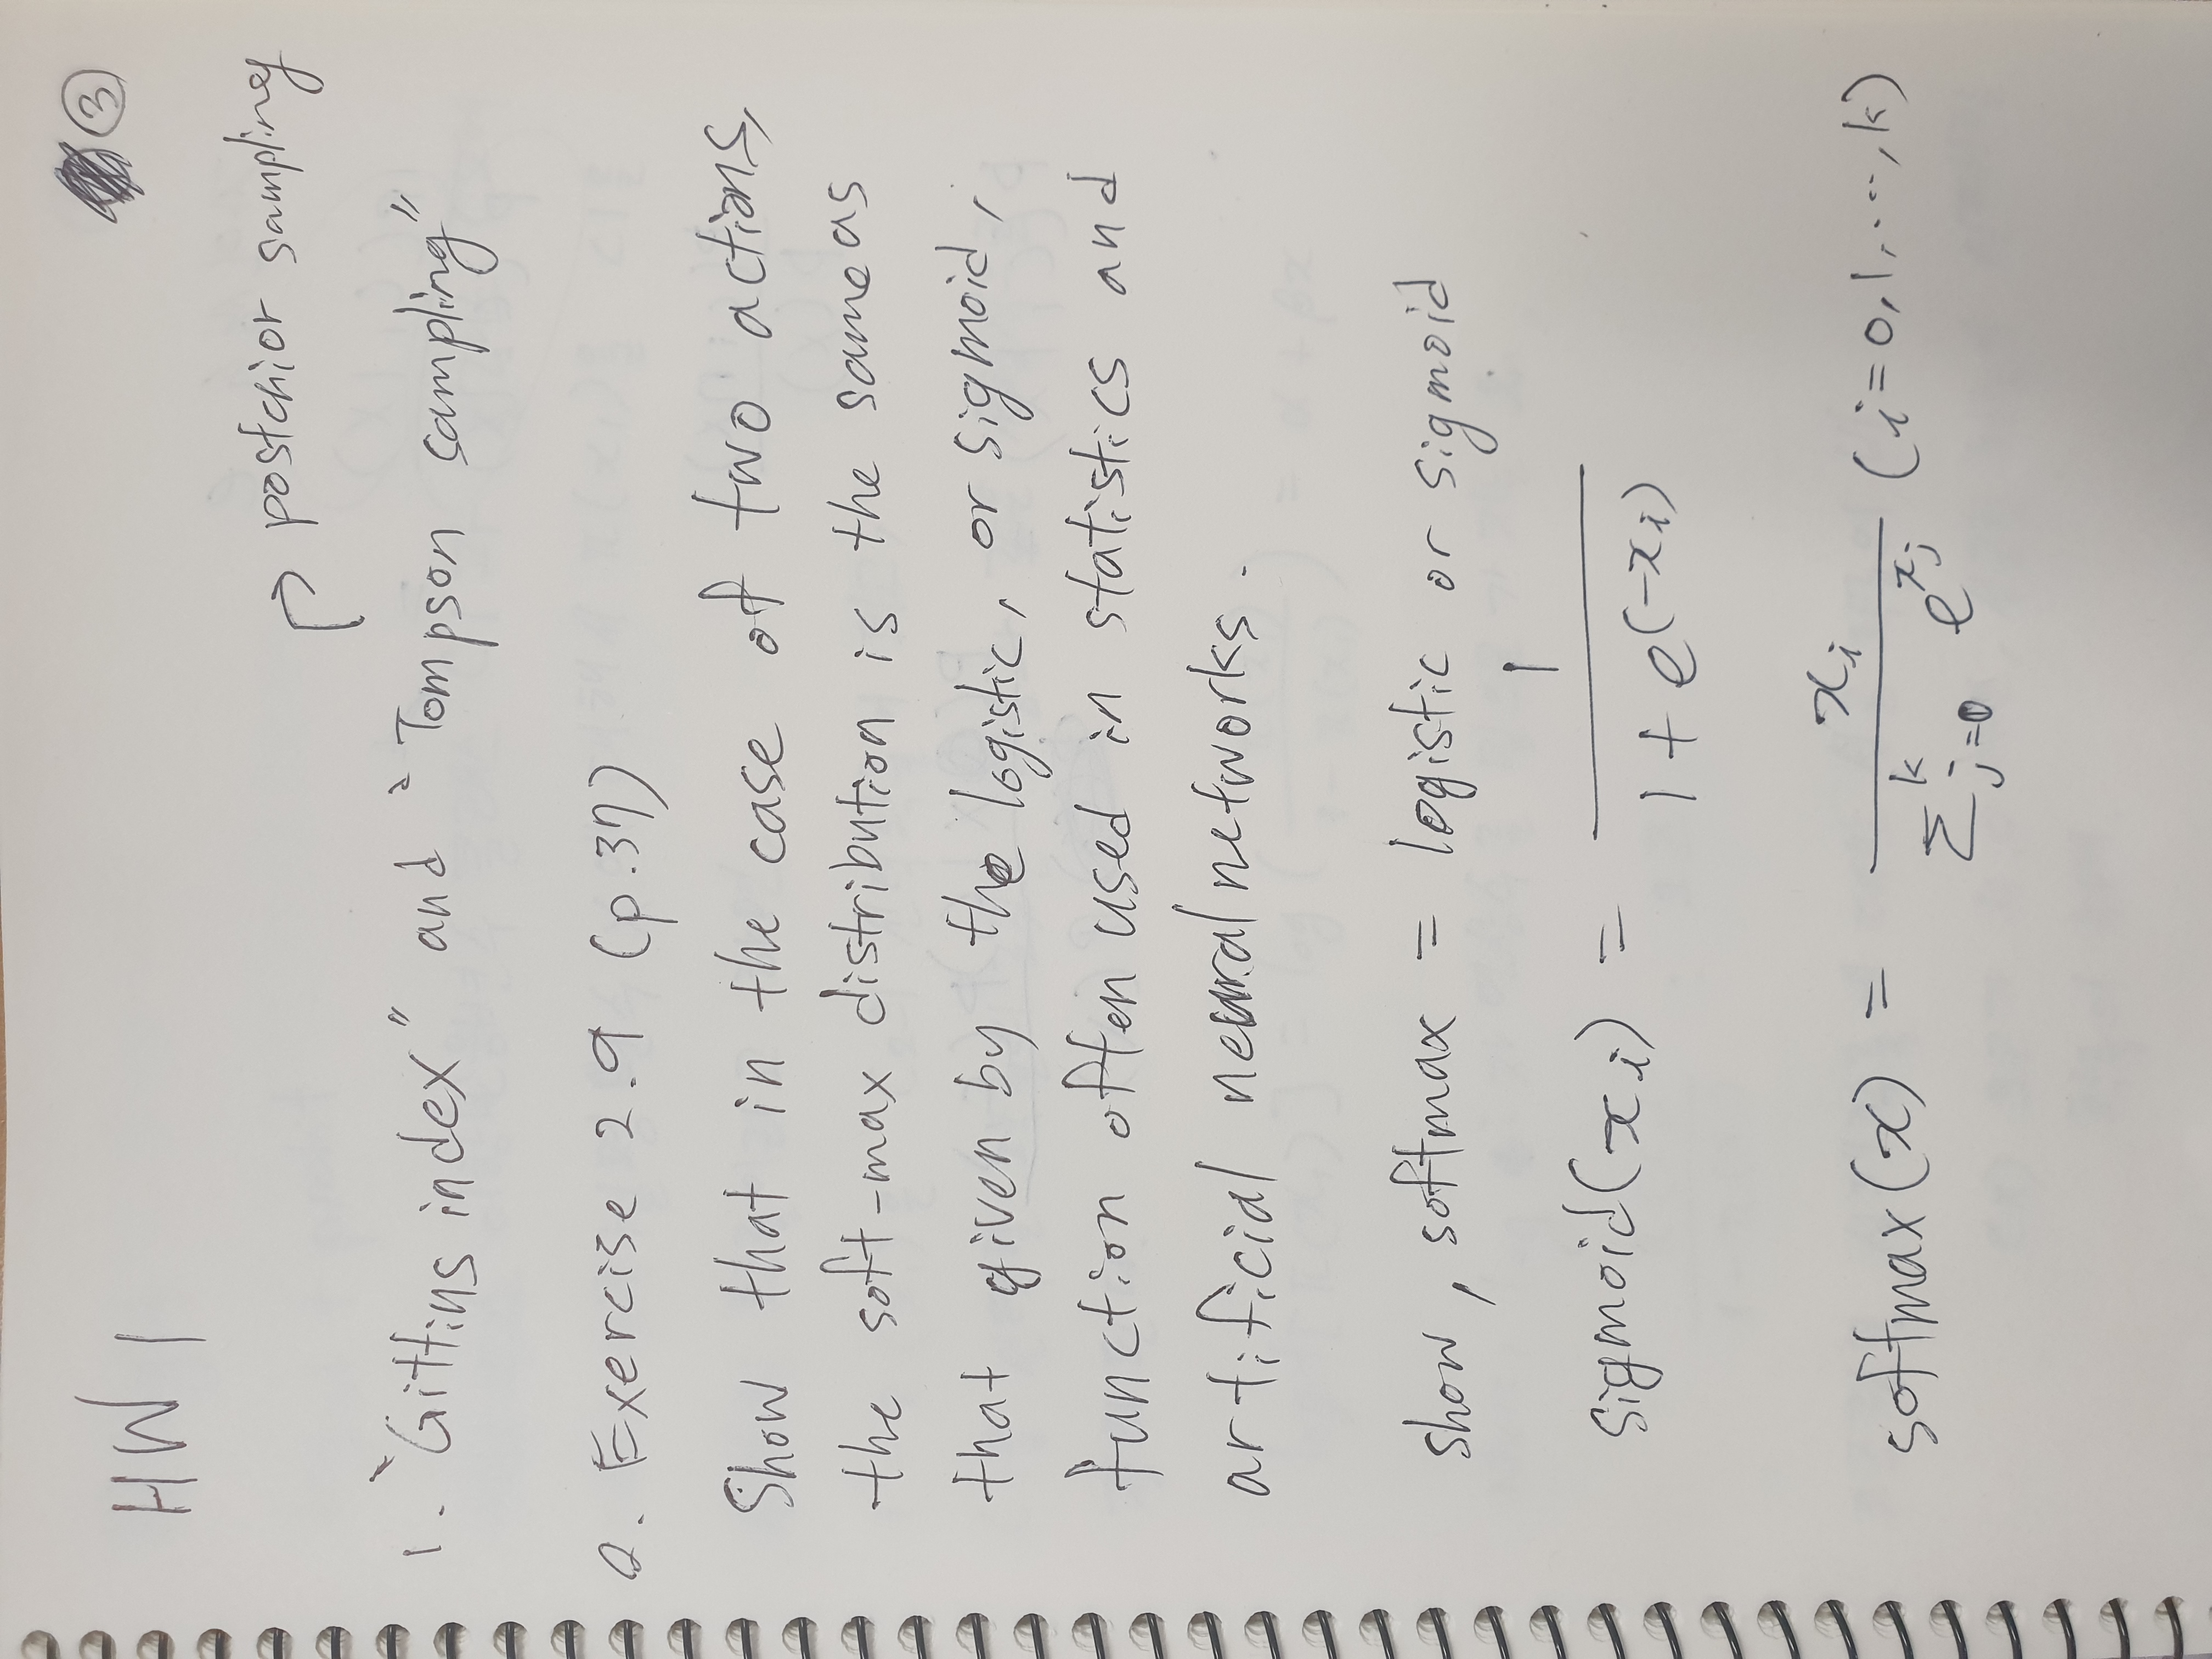 ③
HW 1
↱ postchior sampling
1. "Gittins index" and "Tompson sampling"
2. Exercise 2.9 (p.37)
Show that in the case of two actions,
the soft-max distribution is the same as
that given by the logistic, or sigmoid,
function often used in statistics and
artificial neural networks.
show, softmax = logistic or sigmoid
sigmoid(xᵢ) = 1 / (1 + e^(-xᵢ))
softmax(x) = xᵢ / (Σ_{j=0}^{k} e^{xⱼ}) (i=0,1,...,k)